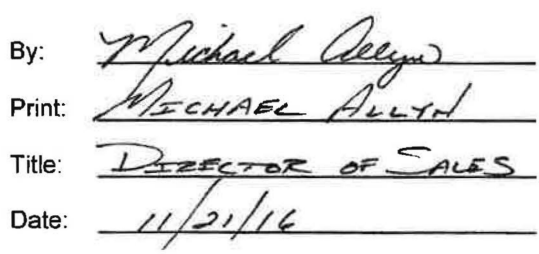 By: Michael Allyn
Print: MICHAEL ALLYN
Title: DIRECTOR OF SALES
Date: 11/21/16